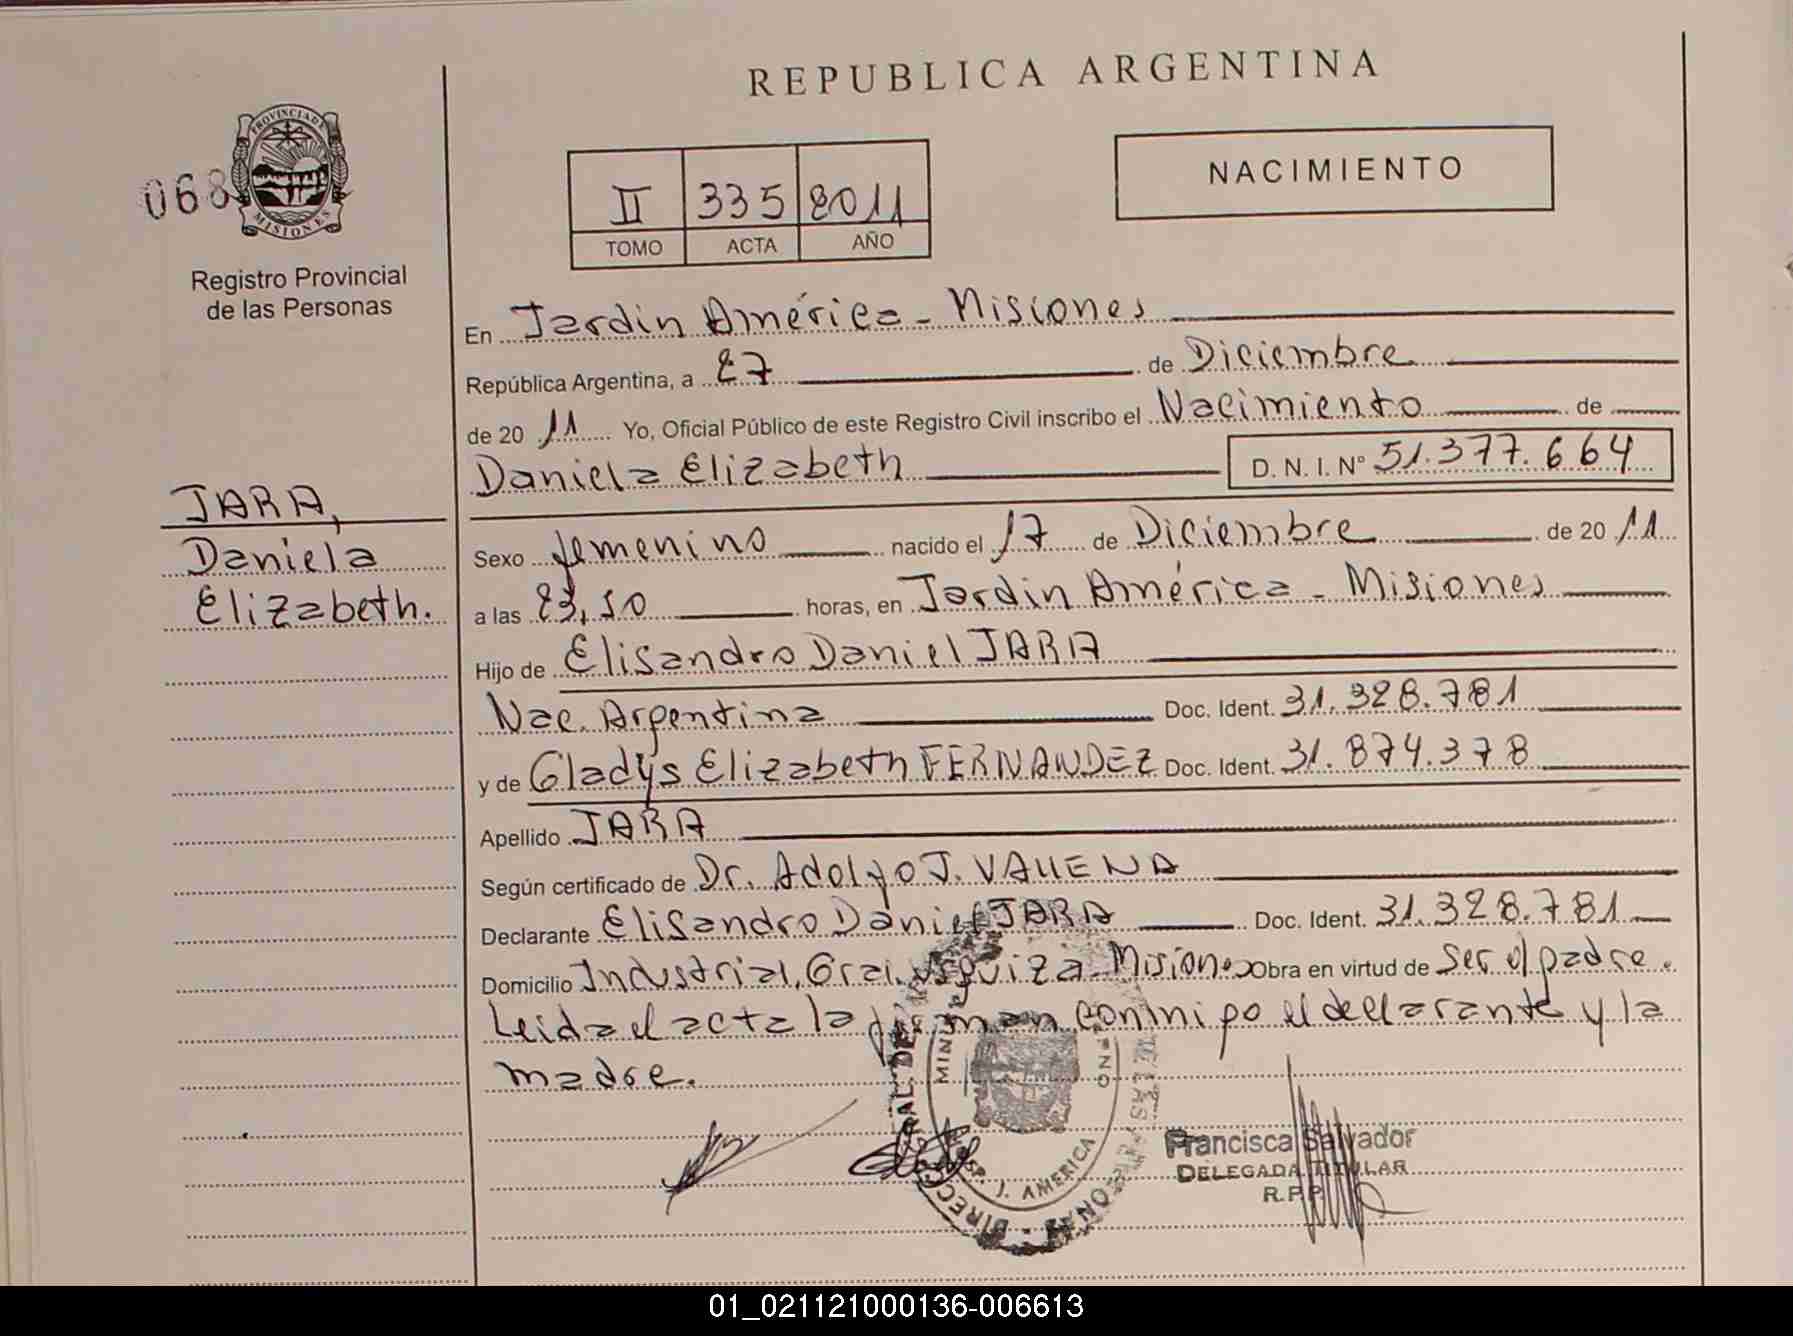 REPUBLICA ARGENTINA
PROVINCIA DE
MISIONES
068
Registro Provincial
de las Personas
II 335 2011
TOMO ACTA AÑO
NACIMIENTO
En Jardin América - Misiones
República Argentina, a 27 de Diciembre
de 20 11 Yo, Oficial Público de este Registro Civil inscribo el Nacimiento de
Daniela Elizabeth D. N. I. Nº 51.377.664
JARA,
Daniela
Elizabeth.
Sexo femenino nacido el 17 de Diciembre de 20 11
a las 23,10 horas, en Jardin América - Misiones
Hijo de Elisandro Daniel JARA
Nac. Argentina Doc. Ident. 31.328.781
y de Gladys Elizabeth FERNANDEZ Doc. Ident. 31.874.378
Apellido JARA
Según certificado de Dr. Adolfo J. VALLENA
Declarante Elisandro Daniel JARA Doc. Ident. 31.328.781
Domicilio Industrial, Gral. Urquiza - Misiones Obra en virtud de ser el padre.
Leida el acta la firman conmigo el declarante y la
madre.
J. AMERICA
Francisca Salvador
DELEGADA TITULAR
R.P.P.
01_021121000136-006613